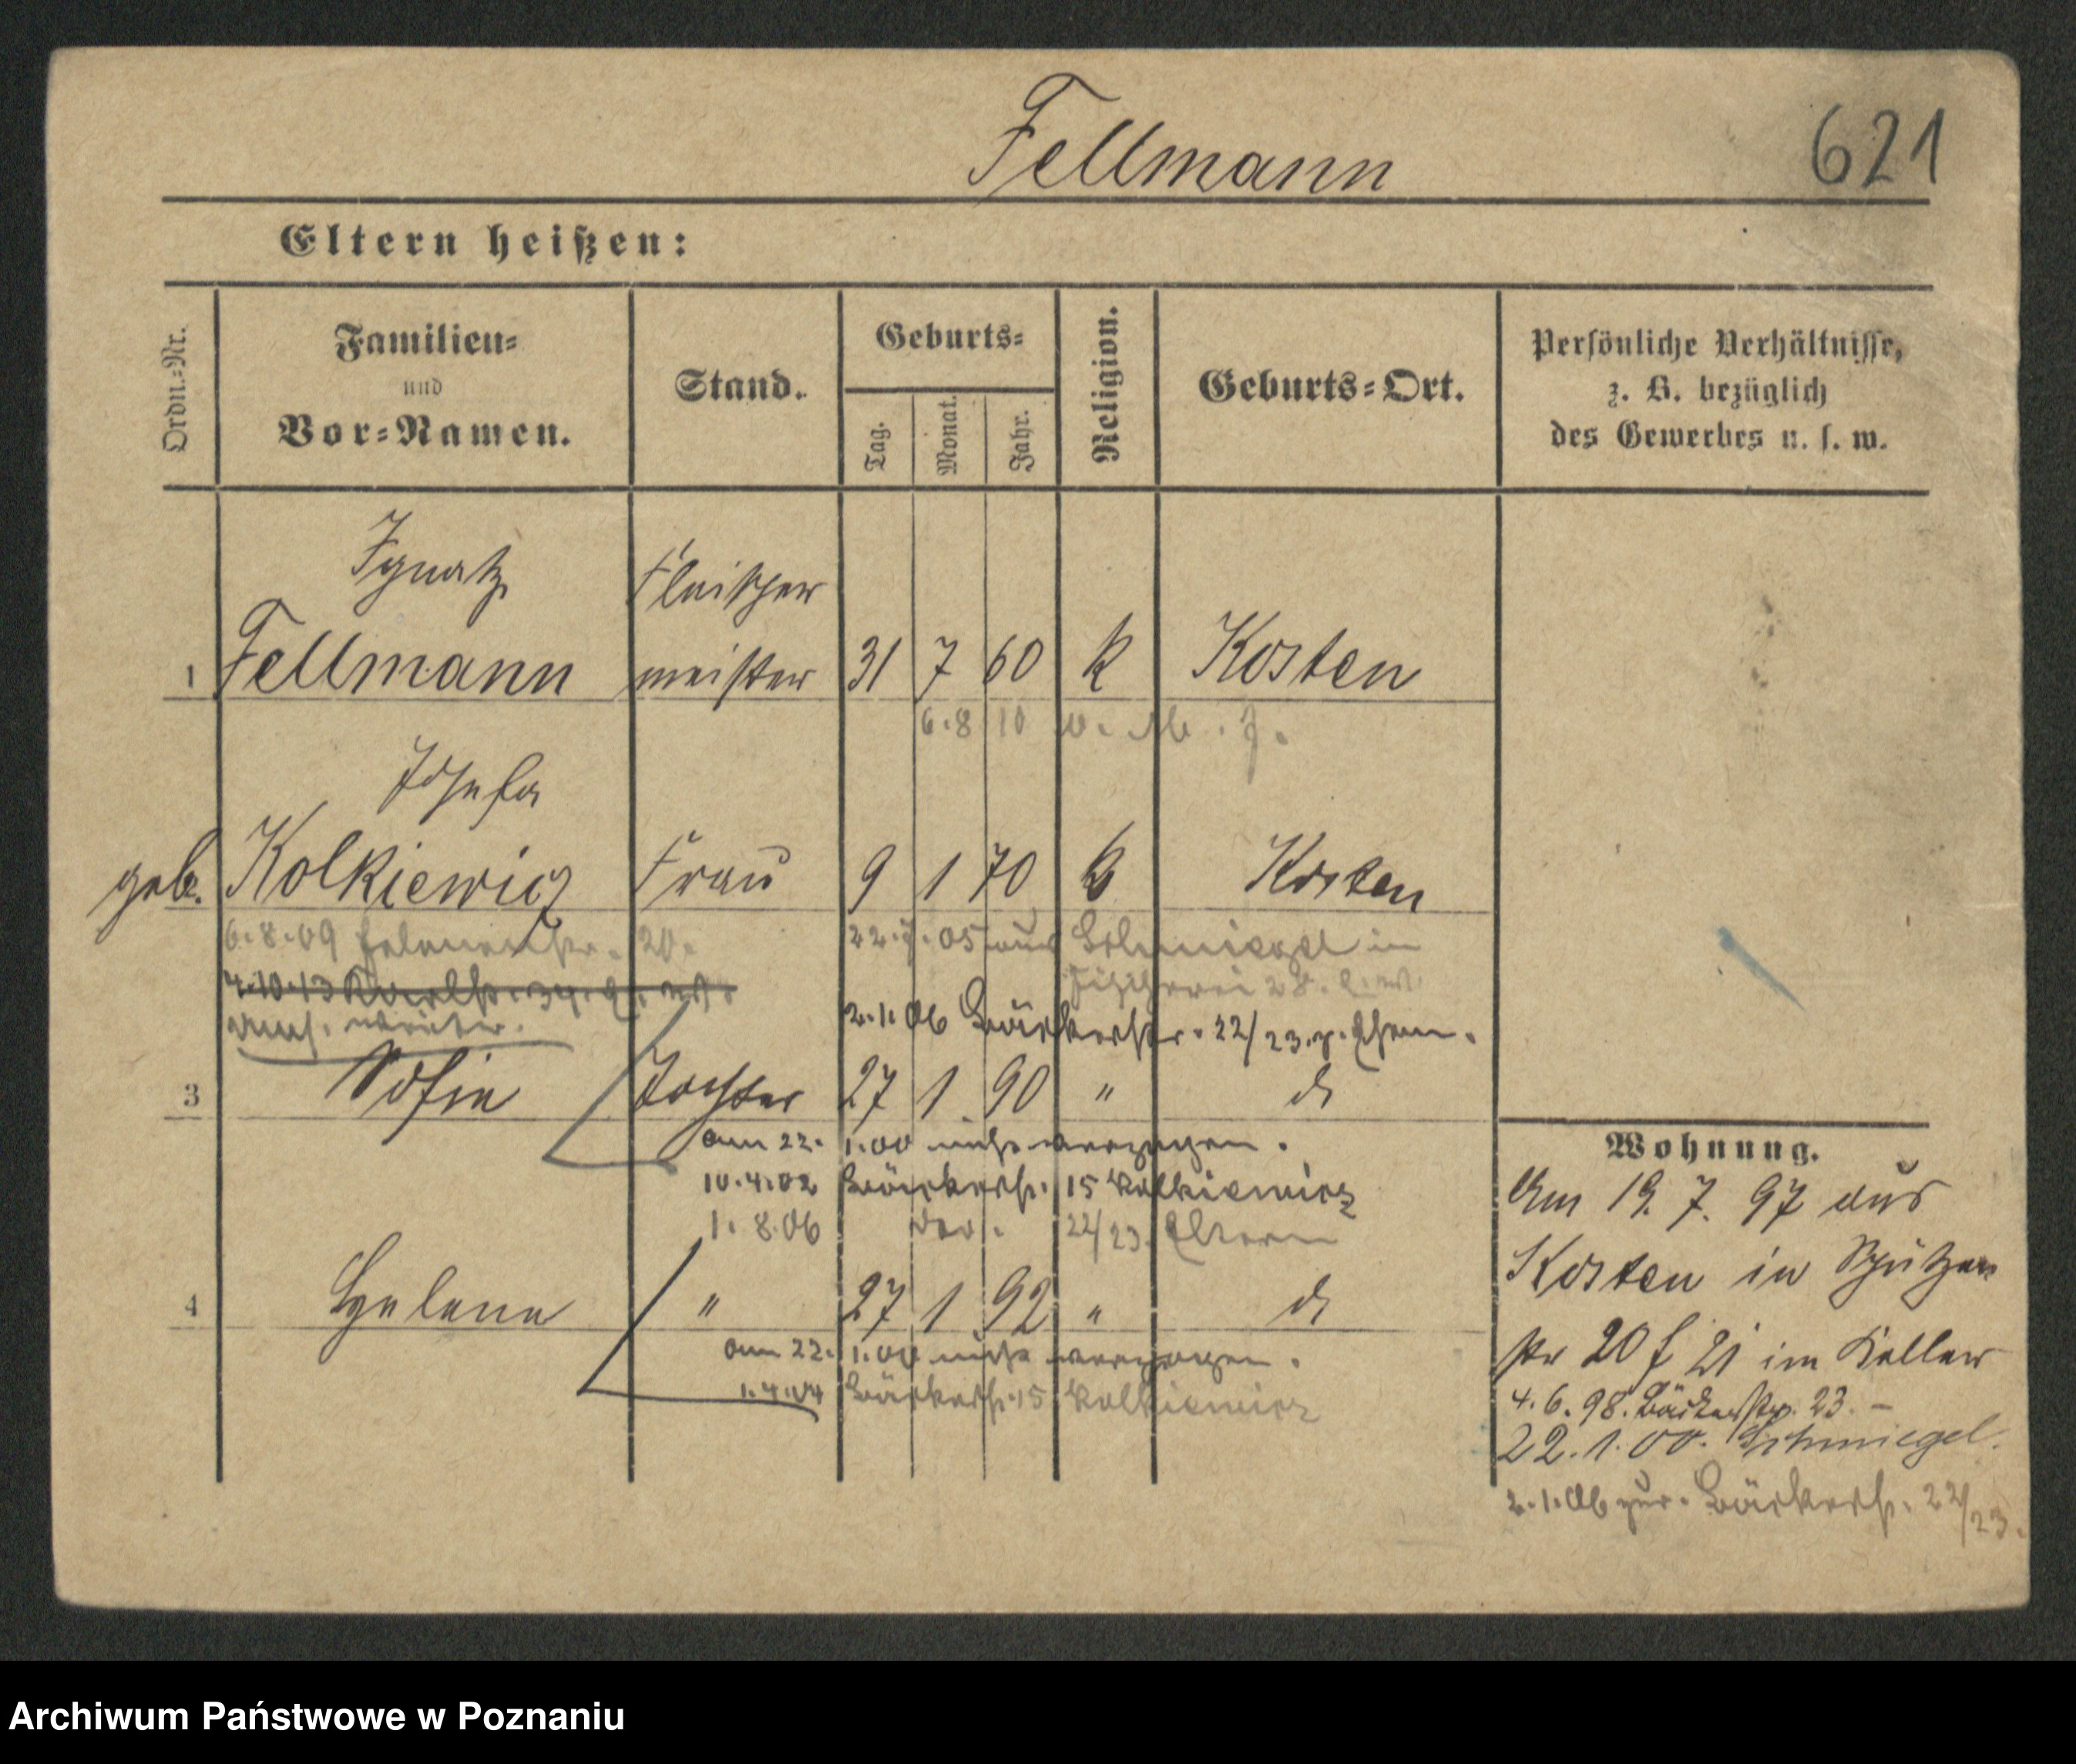 Fellmann
621
Eltern heißen:
Ordn.-Nr.
Familien-
und
Vor-Namen.
Stand.
Geburts-
Tag.
Monat.
Jahr.
Religion.
Geburts-Ort.
Persönliche Verhältnisse,
z. B. bezüglich
des Gewerbes u. s. w.
Ignatz Fleischer
1 Fellmann meister 31 7 60 k Kosten
6.8 10
Josefa
geb. Kolkiewicz Frau 9 1 70 k Kosten
6.8.09 20. 22.7.05 aus Schmiegel in
4.10.13 Fischerei 28.
2.1.06 Bäckerstr. 22/23. z. Ehem.
3 Sofie Tochter 27 1 90 " do
am 22. 1.00 nicht verzogen.
10.4.02 Bäckerstr. 15 Kolkiewicz
1.8.06 22/23. Eltern
4 Helene " 27 1 92 " do
am 22. 1.00 nicht verzogen.
1.4.04 Bäckerstr. 15 Kolkiewicz
Wohnung.
Am 19. 7. 97 aus
Kosten in Schützen
str 20 f 21 im Keller
4.6.98. Bäckerstr. 23. –
22.1.00. Schmiegel.
2.1.06 zur. Bäckerstr. 22/23.
Archiwum Państwowe w Poznaniu